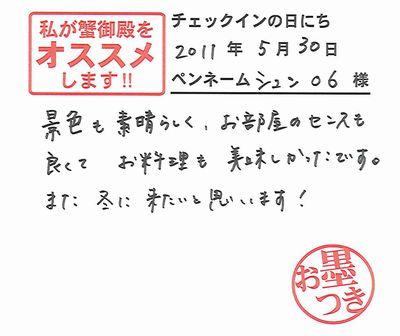 私が蟹御殿を
オススメ
します!!
チェックインの日にち
2011年5月30日
ペンネーム シュン06 様
景色も素晴らしく、お部屋のセンスも
良くて お料理も美味しかったです。
また 冬に来たいと思います!
お墨つき